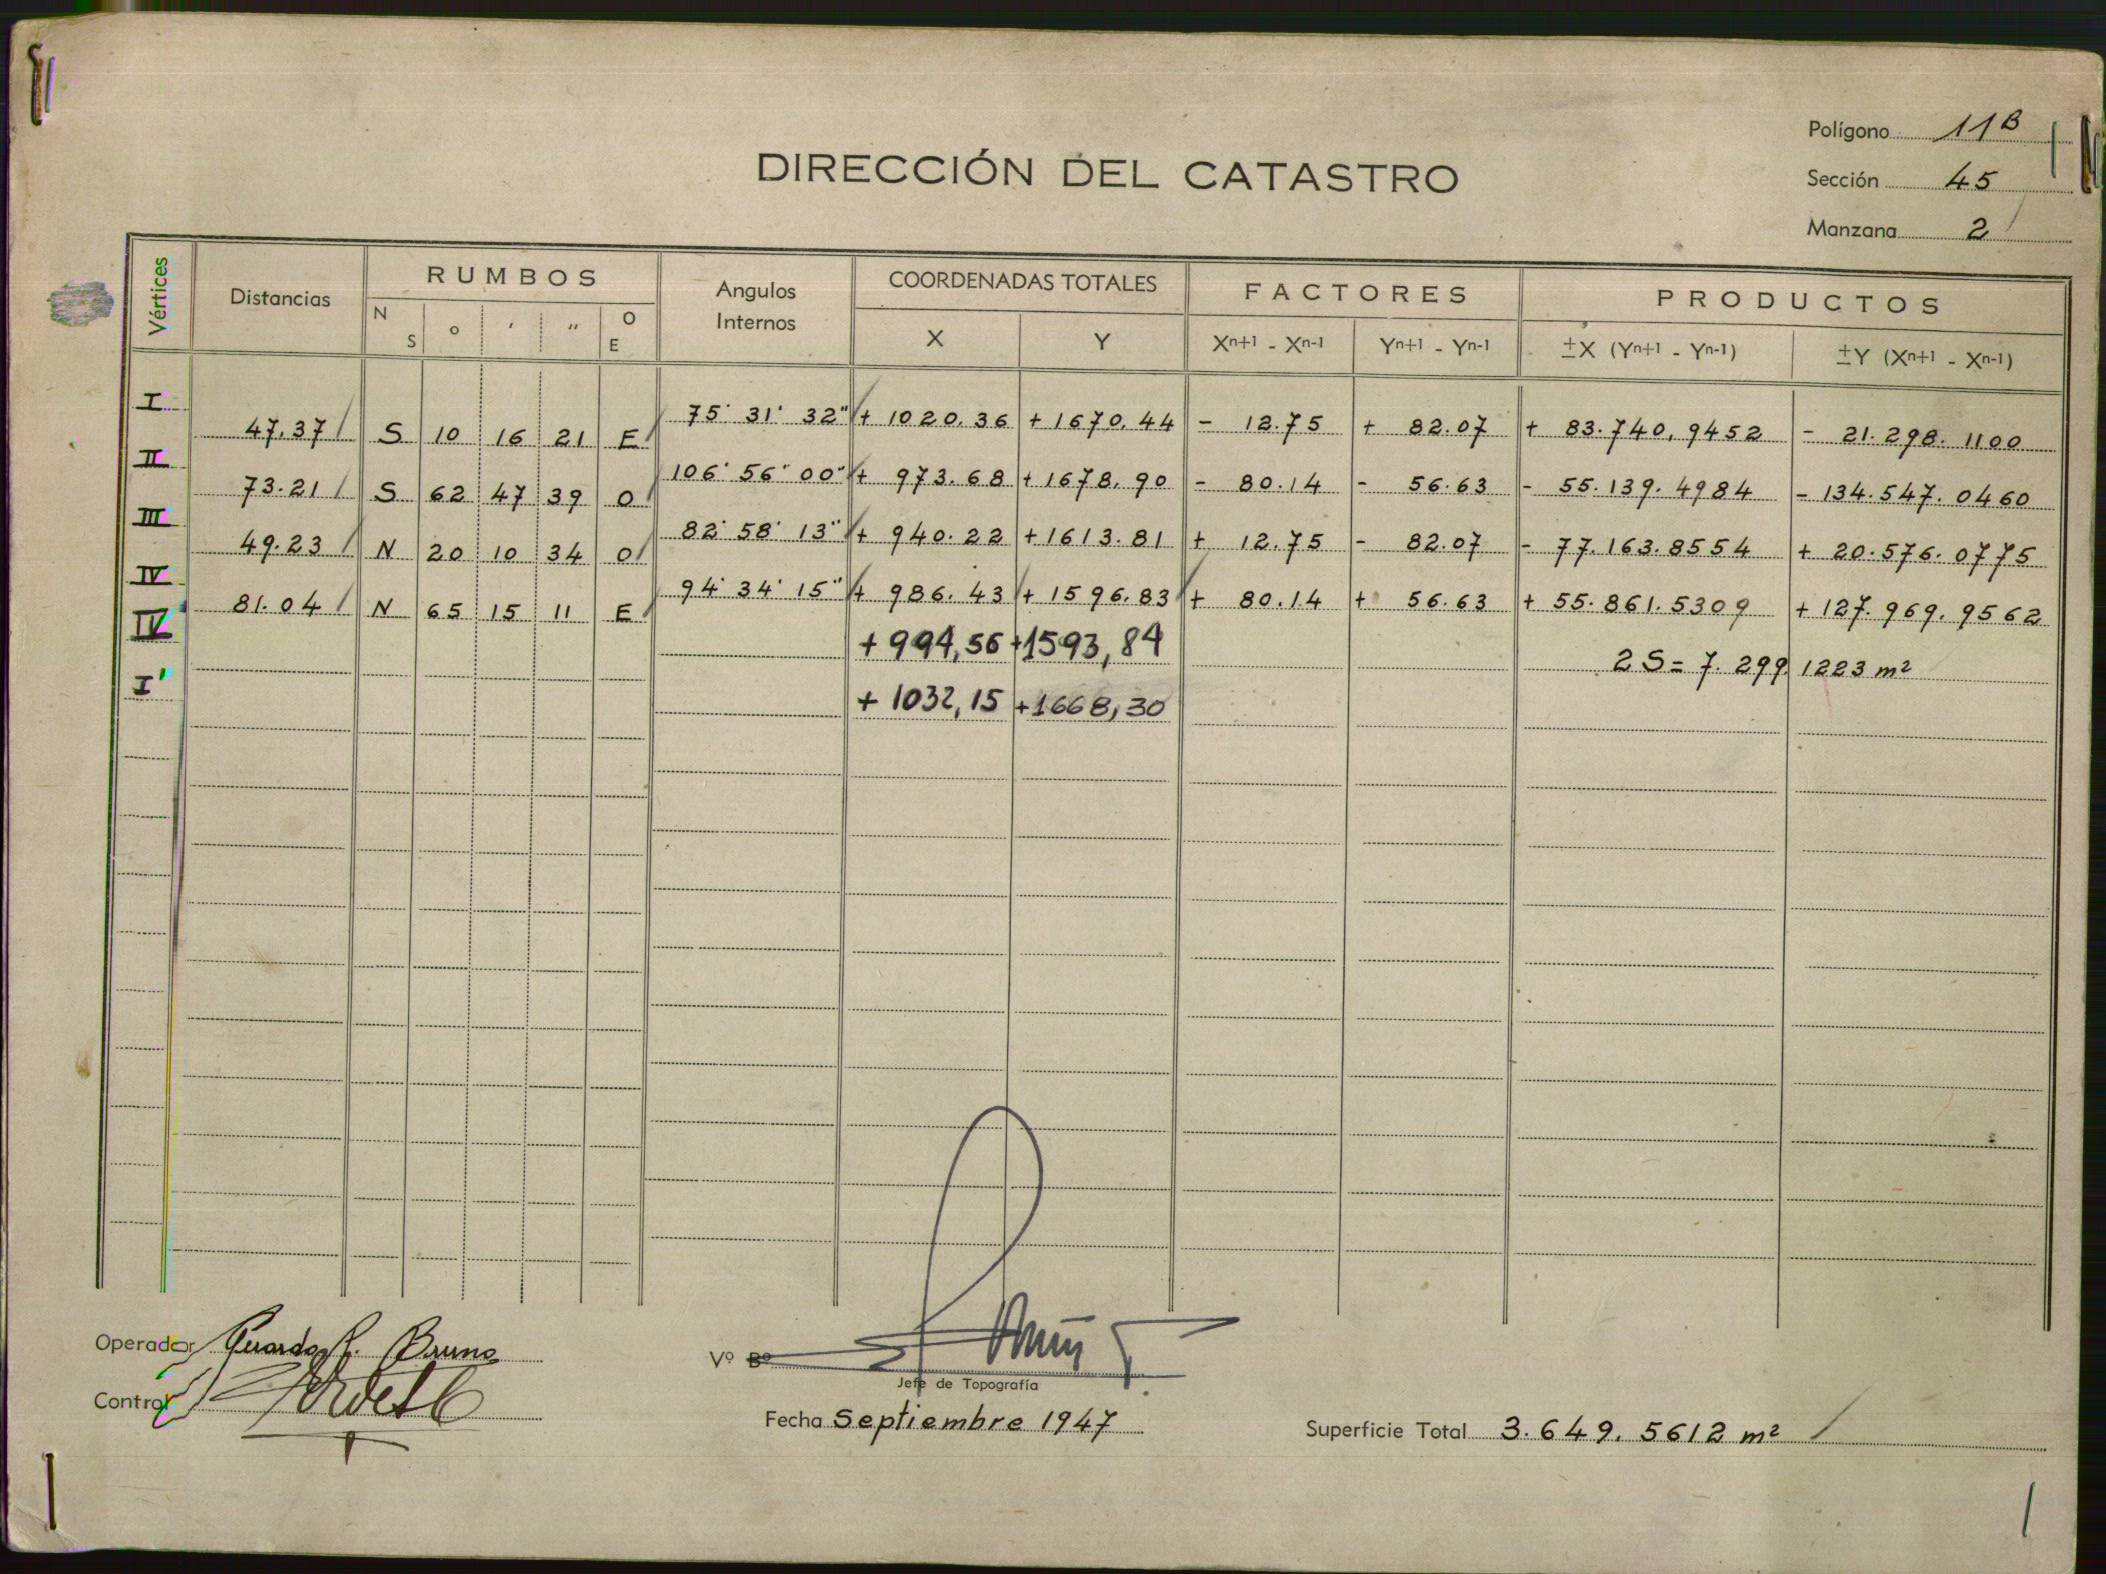 Polígono 11B
DIRECCIÓN DEL CATASTRO
Sección 45
Manzana 2
Vértices Distancias RUMBOS Angulos Internos COORDENADAS TOTALES FACTORES PRODUCTOS
N S o ' '' O E X Y Xn+1 - Xn-1 Yn+1 - Yn-1 ±X (Yn+1 - Yn-1) ±Y (Xn+1 - Xn-1)
I 75° 31' 32" + 1020.36 + 1670.44 - 12.75 + 82.07 + 83.740,9452 - 21.298.1100
47.37 S 10 16 21 E
II 106° 56' 00" + 973.68 + 1678.90 - 80.14 - 56.63 - 55.139.4984 - 134.547.0460
73.21 S 62 47 39 O
III 82° 58' 13" + 940.22 + 1613.81 + 12.75 - 82.07 - 77.163.8554 + 20.576.0775
49.23 N 20 10 34 O
IV 94° 34' 15" + 986.43 + 1596.83 + 80.14 + 56.63 + 55.861.5309 + 127.969.9562
81.04 N 65 15 11 E
IV' + 994,56 +1593,84
2S = 7.299.1223 m²
I' + 1032,15 +1668,30
Operador Bruno
Vº Bº
Jefe de Topografía
Control
Fecha Septiembre 1947
Superficie Total 3.649.5612 m²